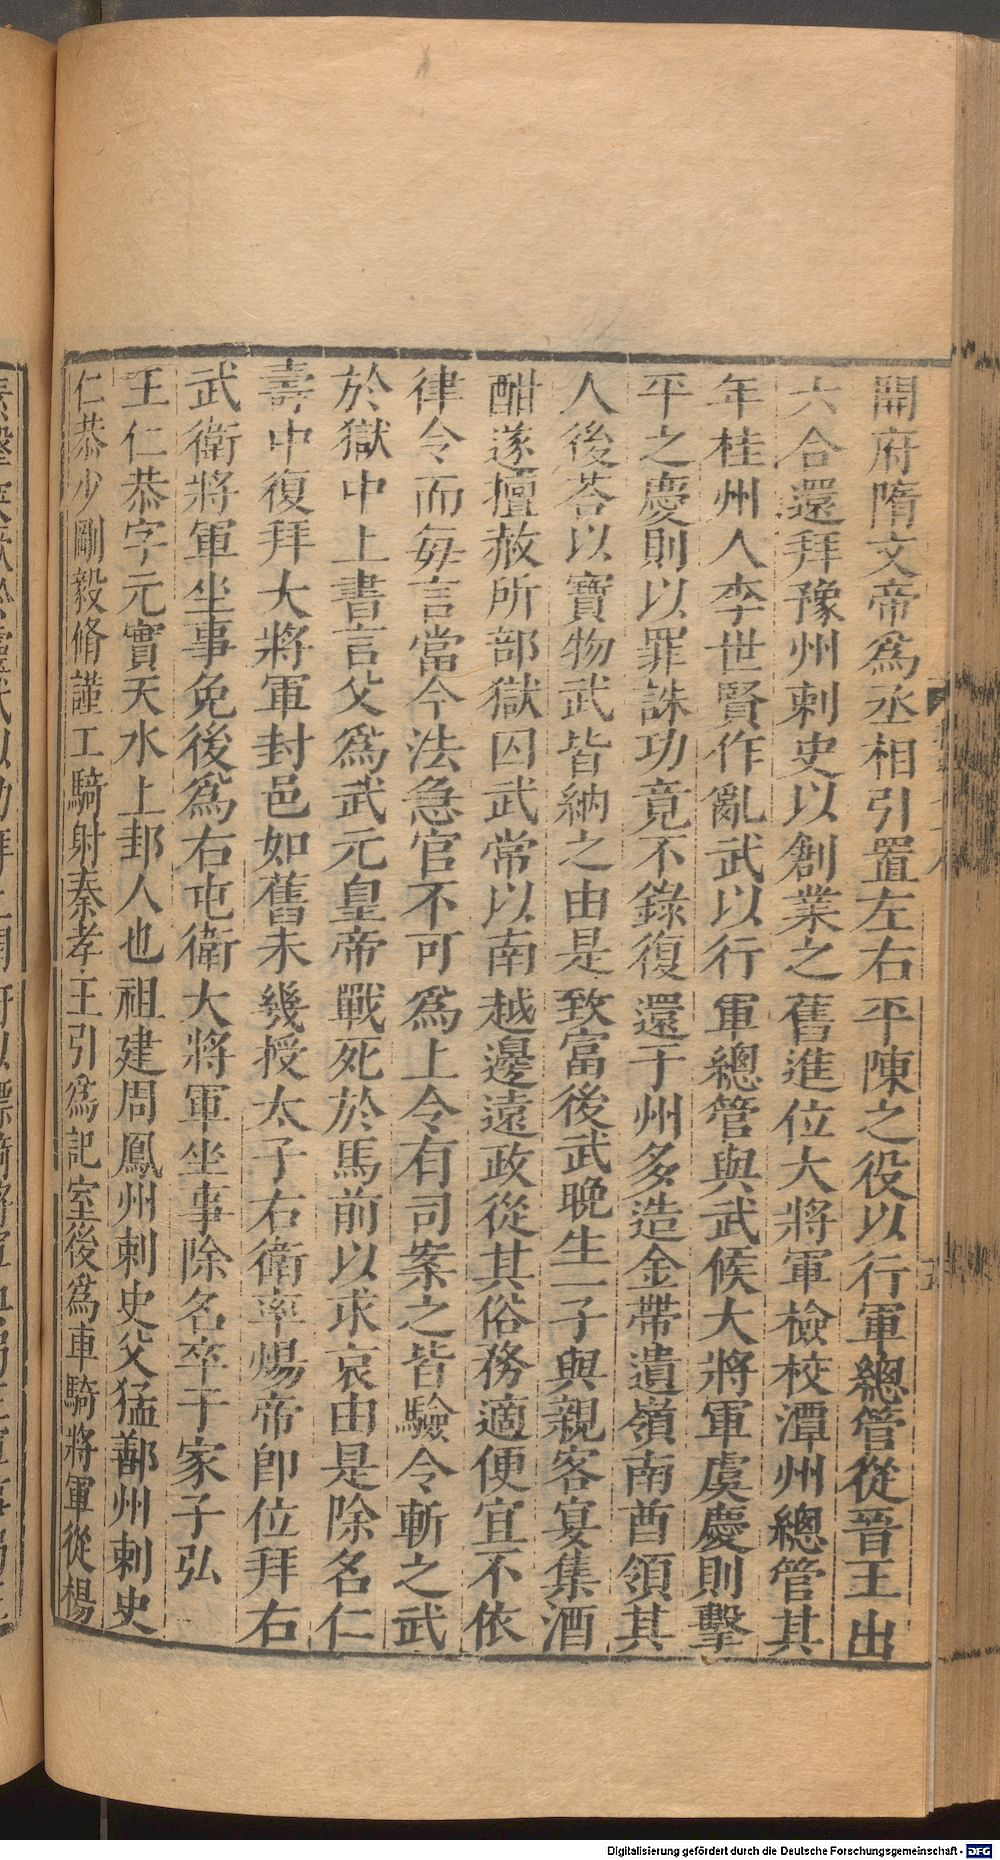 開府隋文帝爲丞相引置左右平陳之役以行軍總管從晉王出
六合還拜豫州刺史以創業之舊進位大將軍檢校潭州總管其
年桂州人李世賢作亂武以行軍總管與武候大將軍虞慶則擊
平之慶則以罪誅功竟不錄復還于州多造金帶遺嶺南酋領其
人後荅以寶物武皆納之由是致富後武晚生一子與親客宴集酒
酣遂擅赦所部獄囚武常以南越邊遠政從其俗務適便宜不依
律令而每言當今法急官不可爲上令有司案之皆驗令斬之武
於獄中上書言父爲武元皇帝戰死於馬前以求哀由是除名仁
壽中復拜大將軍封邑如舊未幾授太子右衛率煬帝卽位拜右
武衛將軍坐事免後爲右屯衛大將軍坐事除名卒于家子弘
王仁恭字元實天水上邽人也祖建周鳳州刺史父猛鄯州刺史
仁恭少剛毅脩謹工騎射秦孝王引爲記室後爲車騎將軍從楊
Digitalisierung gefördert durch die Deutsche Forschungsgemeinschaft - DFG